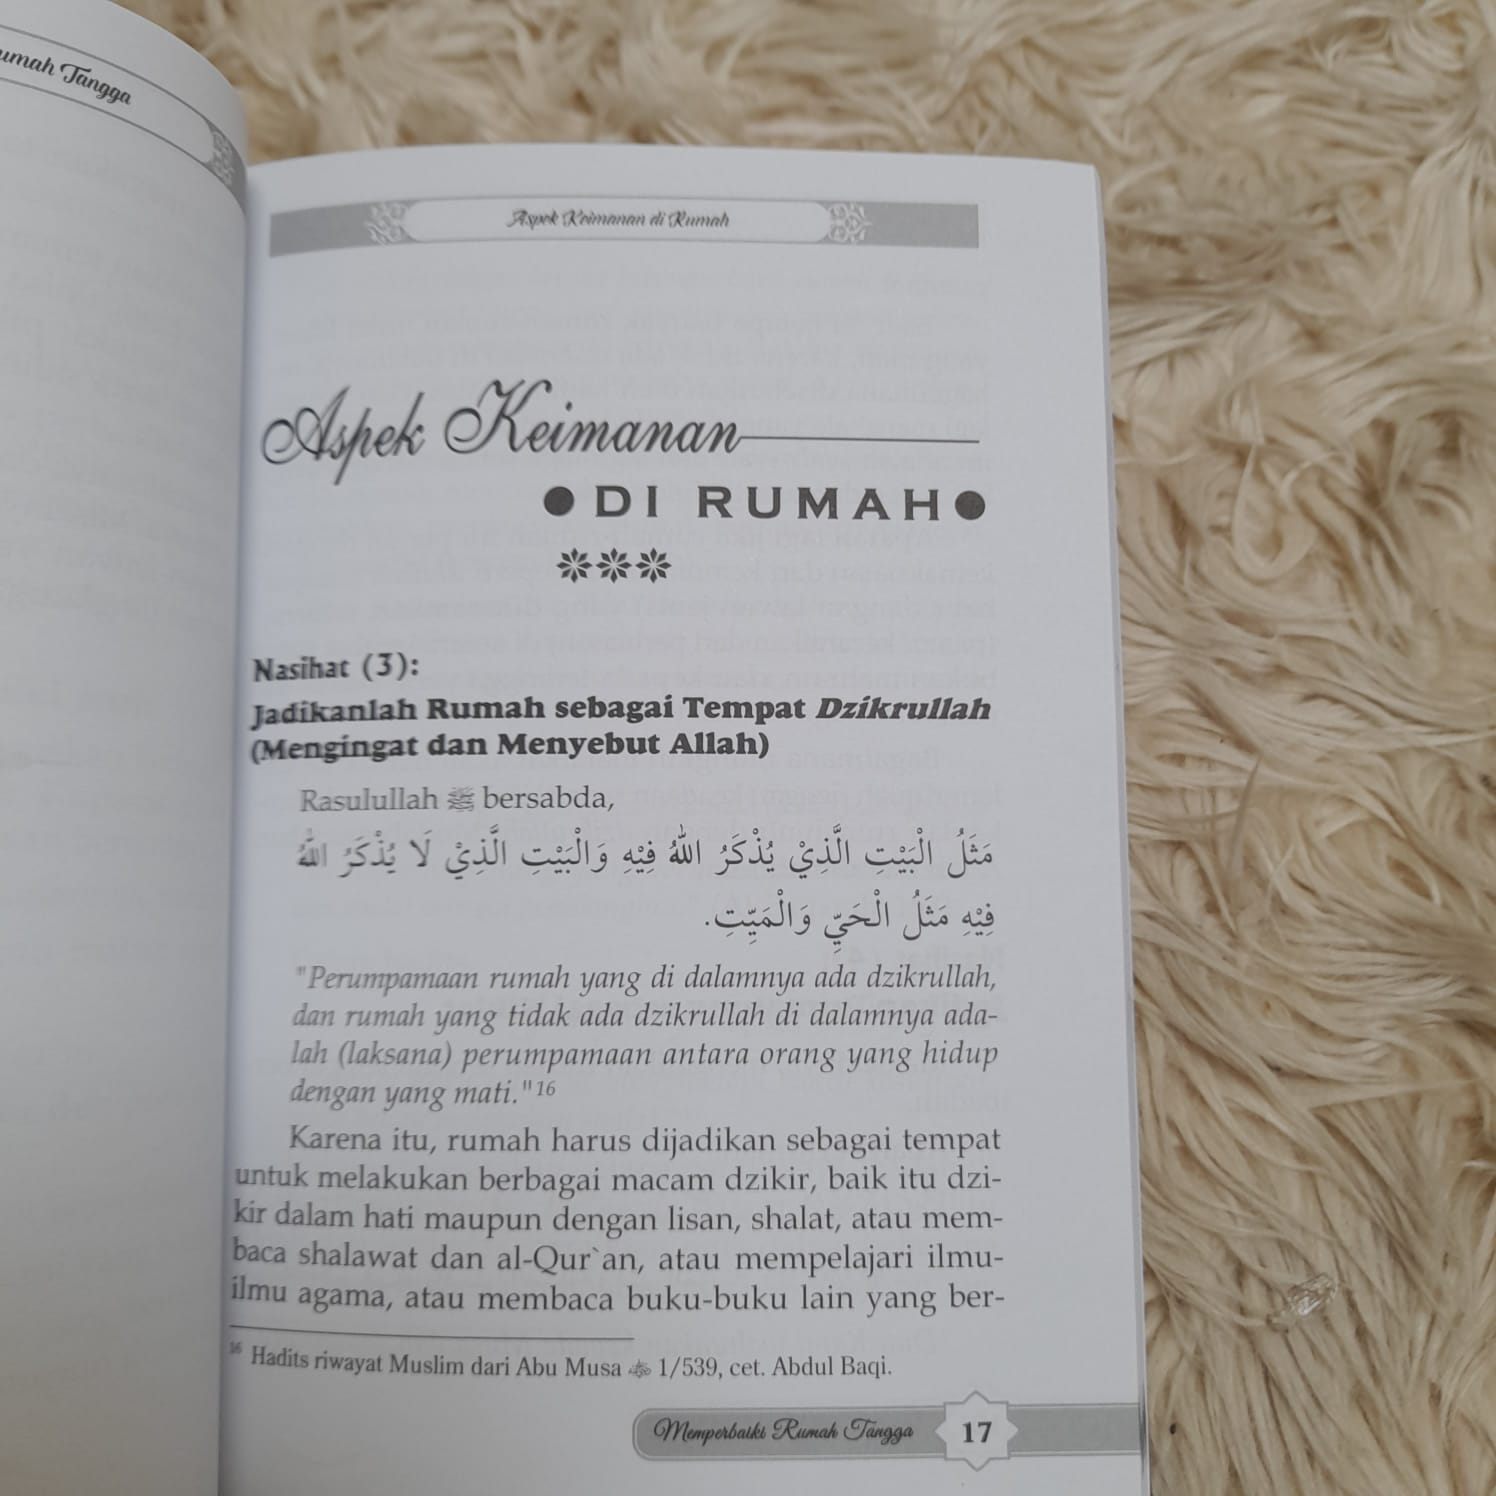 Rumah Tangga
Aspek Keimanan di Rumah
Aspek Keimanan
● DI RUMAH ●
Nasihat (3):
Jadikanlah Rumah sebagai Tempat Dzikrullah
(Mengingat dan Menyebut Allah)
Rasulullah ﷺ bersabda,
مَثَلُ الْبَيْتِ الَّذِيْ يُذْكَرُ اللهُ فِيْهِ وَالْبَيْتِ الَّذِيْ لَا يُذْكَرُ اللهُ
فِيْهِ مَثَلُ الْحَيِّ وَالْمَيِّتِ.
"Perumpamaan rumah yang di dalamnya ada dzikrullah,
dan rumah yang tidak ada dzikrullah di dalamnya ada-
lah (laksana) perumpamaan antara orang yang hidup
dengan yang mati."16
Karena itu, rumah harus dijadikan sebagai tempat
untuk melakukan berbagai macam dzikir, baik itu dzi-
kir dalam hati maupun dengan lisan, shalat, atau mem-
baca shalawat dan al-Qur`an, atau mempelajari ilmu-
ilmu agama, atau membaca buku-buku lain yang ber-
16 Hadits riwayat Muslim dari Abu Musa 1/539, cet. Abdul Baqi.
Memperbaiki Rumah Tangga
17